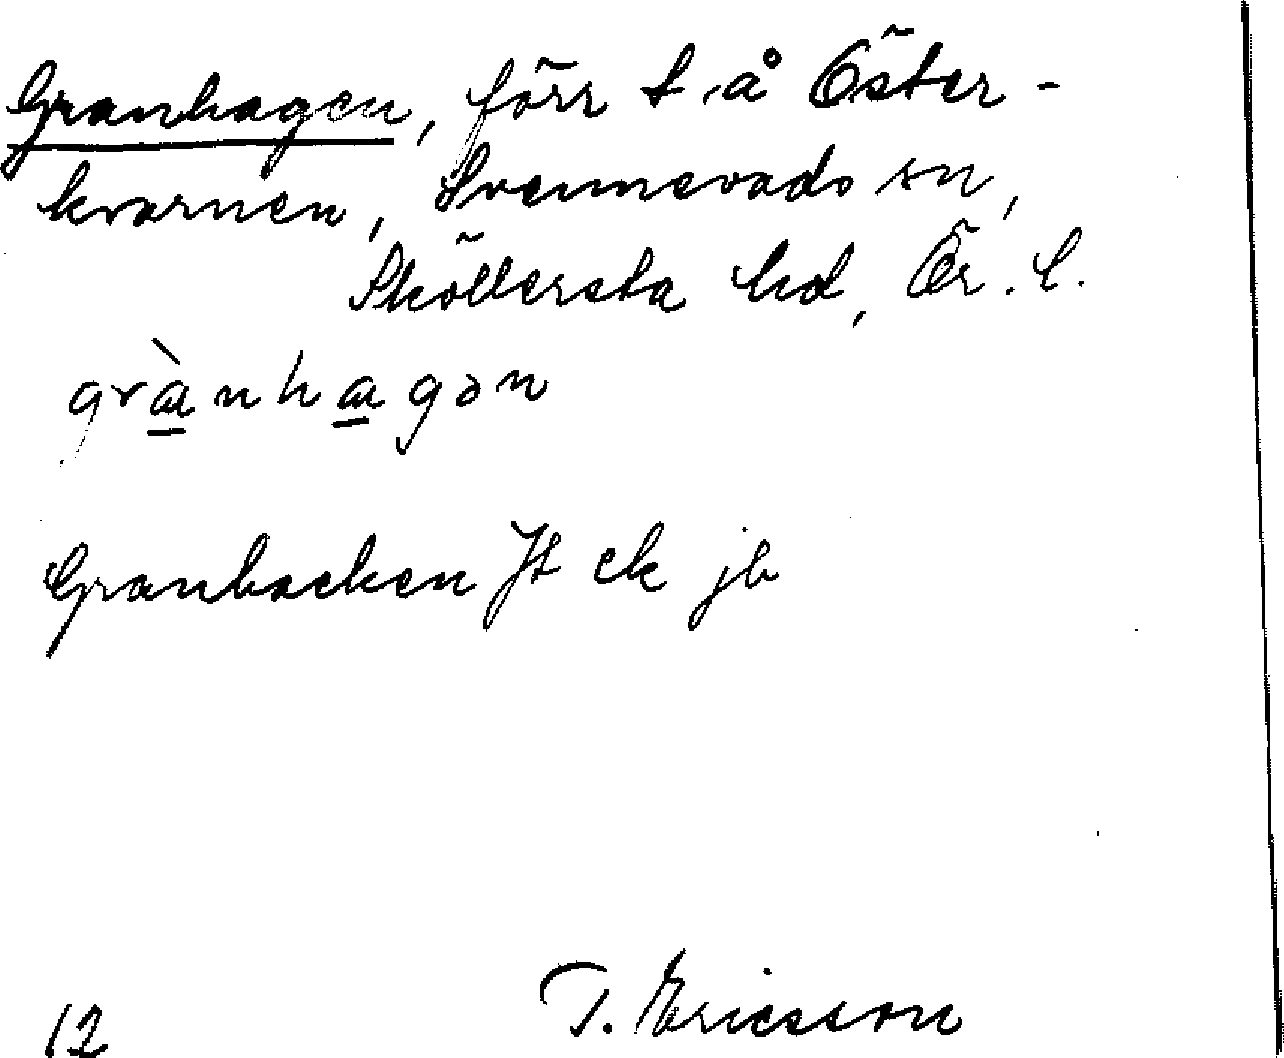 Granhagen, förr t. å Öster-
kvarnen, Svennevads sn,
Sköllersta hd, Ör. l.
grànhagən
Granbacken Jt ek jb
12 T. Ericsson